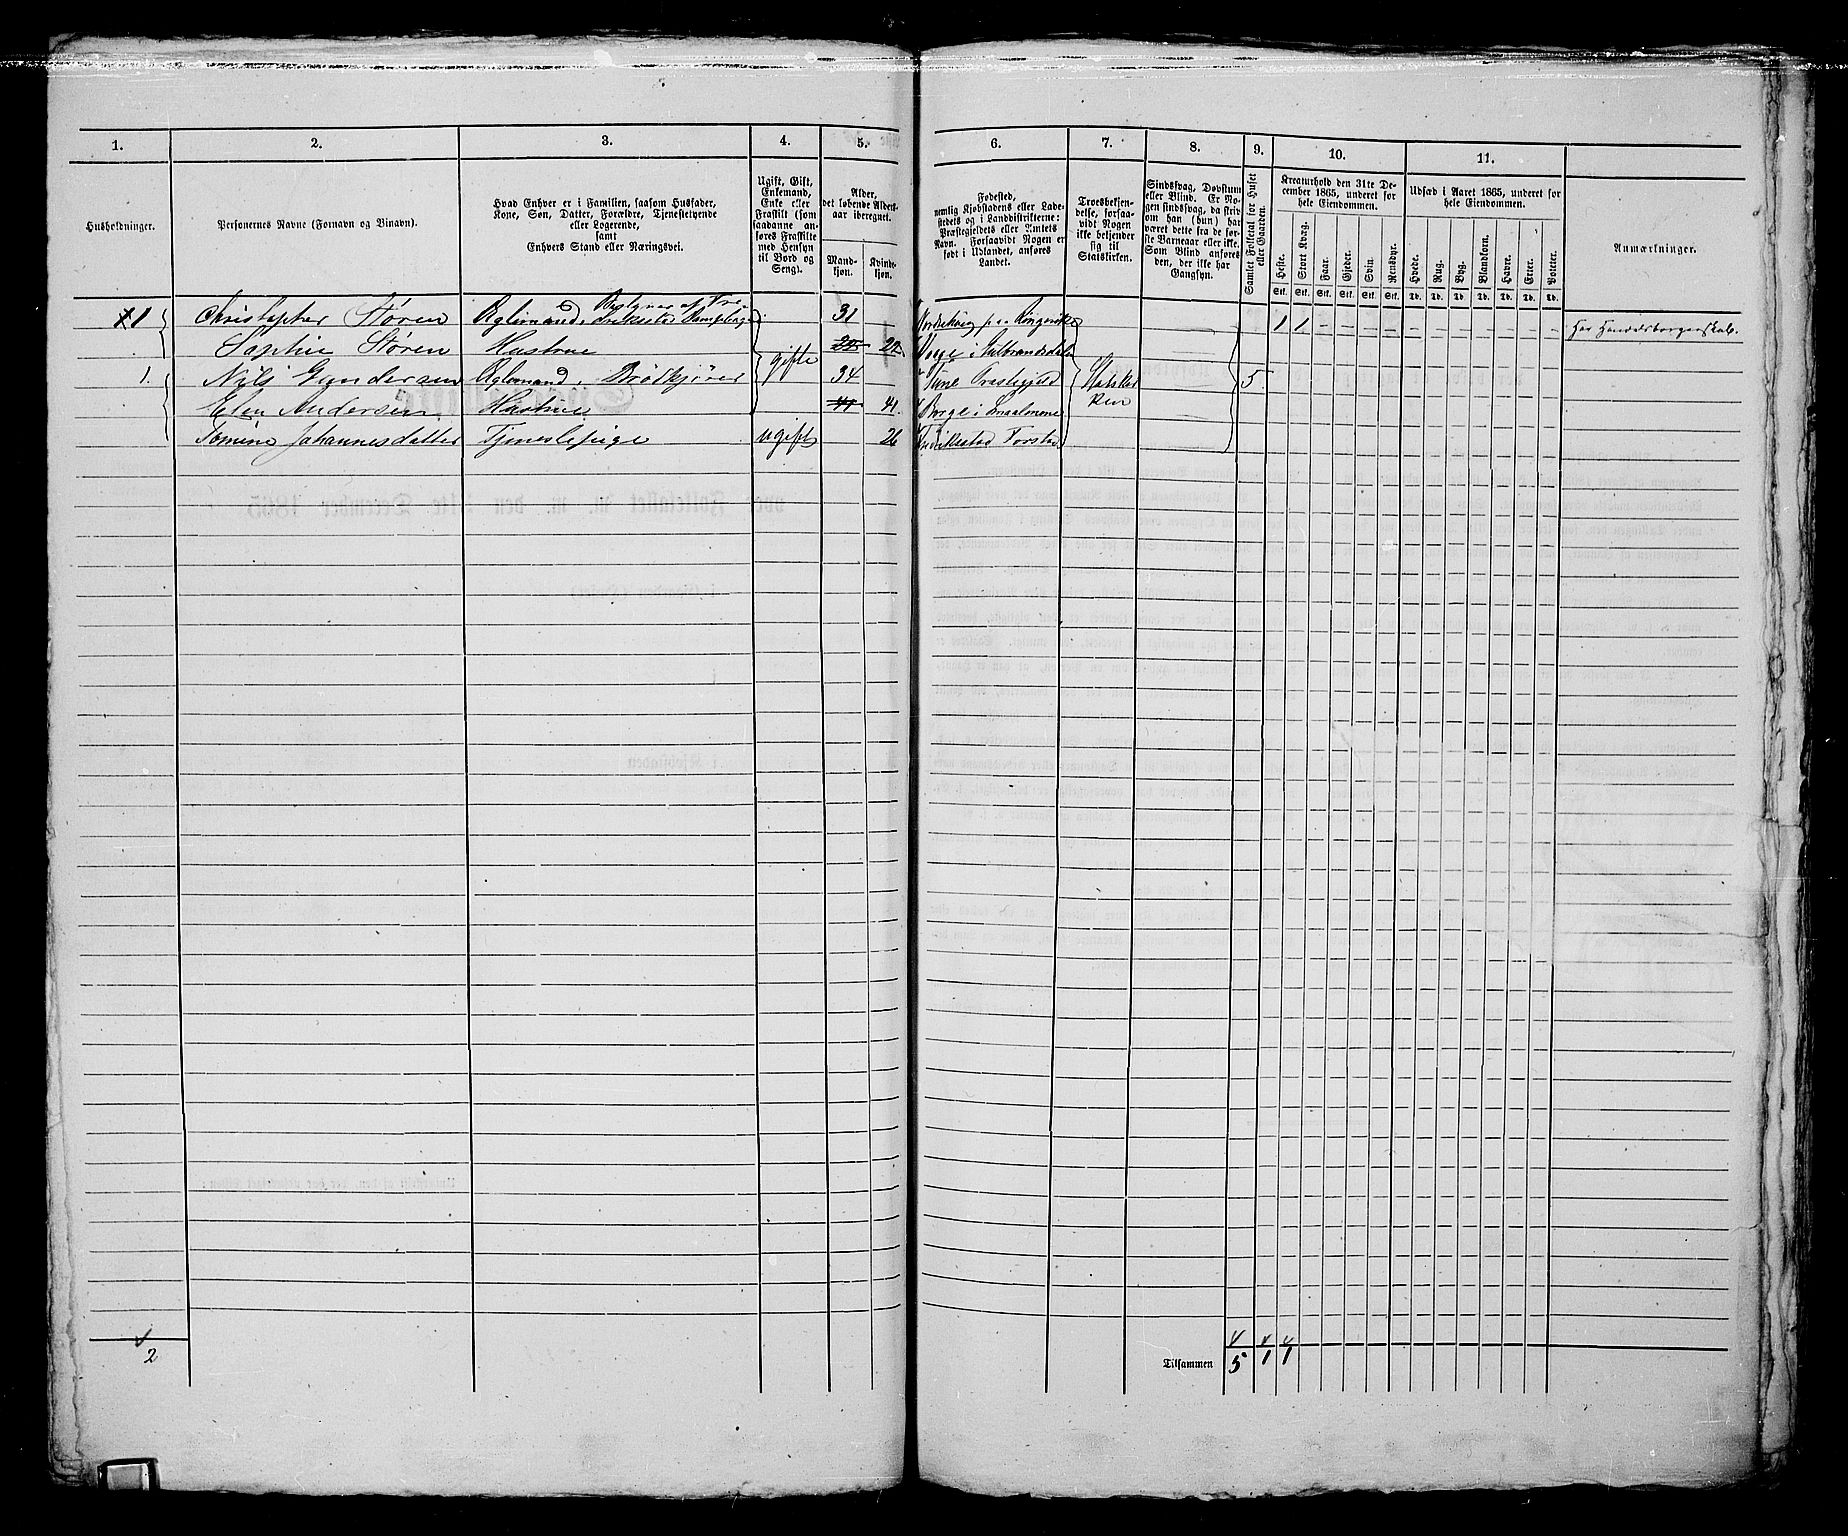 1. 2. 3. 4. 5. 6. 7. 8. 9. 10. 11.
Husholdninger.
Personernes Navne (Fornavn og Binavn).
Hvad Enhver er i Familien, saasom Husfader,
Kone, Søn, Datter, Forældre, Tjenestetyende
eller Logerende,
samt
Enhvers Stand eller Næringsvei.
Ugift, Gift,
Enkemand,
Enke eller
Fraskilt (som
saadanne an-
føres Fraskilte
med Hensyn
til Bord og
Seng).
Alder,
det løbende Alders-
aar iberegnet.
Mand-
kjøn.
Kvinde-
kjøn.
Fødested,
nemlig Kjøbstadens eller Lade-
stedets og i Landdistrikterne:
Præstegjeldets eller Amtets
Navn. Forsaavidt Nogen er
født i Udlandet, anføres
Landet.
Troesbekjen-
delse, forsaa-
vidt Nogen
ikke bekjender
sig til
Statskirken.
Sindssvag, Døvstum
eller Blind. Er No-
gen sindssvag, da skriv
om han (hun) har
været dette fra de før-
ste Barneaar eller ikke.
Som Blind anføres
den, der ikke har
Gangsyn.
Samlet Folketal for Huset
eller Gaarden.
Kreaturhold den 31te De-
cember 1865, underet for
hele Eiendommen.
Heste. Stort Kvæg. Faar. Gjeder. Svin. Rensdyr.
Stk. Stk. Stk. Stk. Stk. Stk.
Udsæd i Aaret 1865, underet for
hele Eiendommen.
Hvede. Rug. Byg. Blandkorn. Havre. Erter. Poteter.
Td. Td. Td. Td. Td. Td. Td.
Anmærkninger.
1 Christopher Støren Eglemand, Bestyrer af Fre- 31 Nordrehoug paa Ringerike 1 1 Har Handelsborgerskab.
Sophie Støren Hustrue gifte 22 22 i Gulbrandsdalen
1. Nils Gundersen Eglemand, Brødkjører 34 Tune Prestegjeld Statskir 5
Elen Andersen Hustrue 41 41 Borge i Smaalenene ken
Tomine Johannesdatter Tjenestepige ugift 26 Fredrikstad Forstad
2
Tilsammen 5 1 1